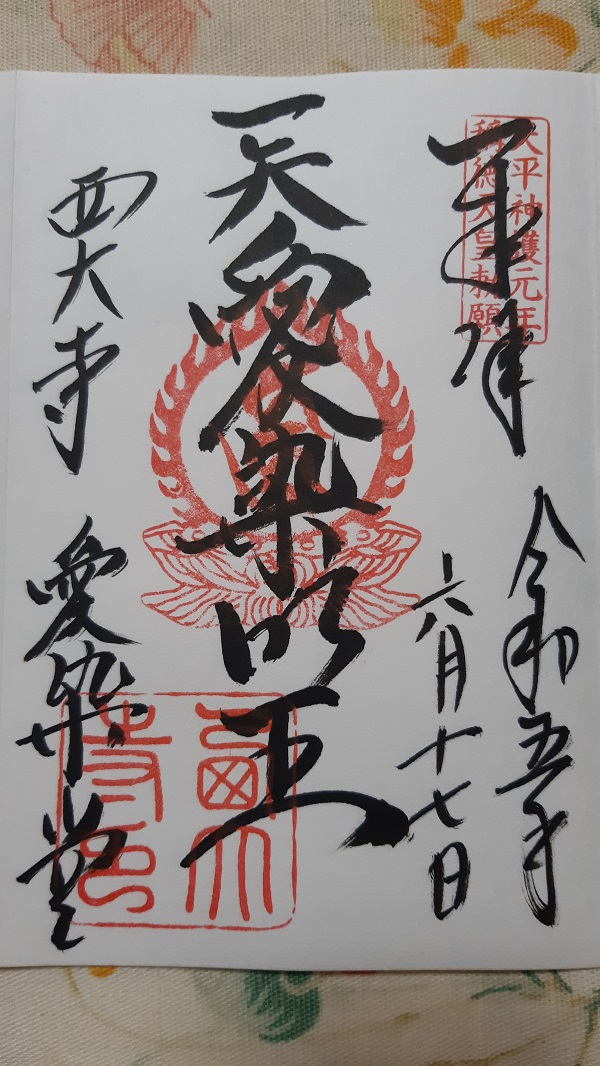 天平神護元年
稱徳天皇勅願
奉拝
令和五年
六月十七日
愛染明王
西大寺 愛染堂
西大
寺印